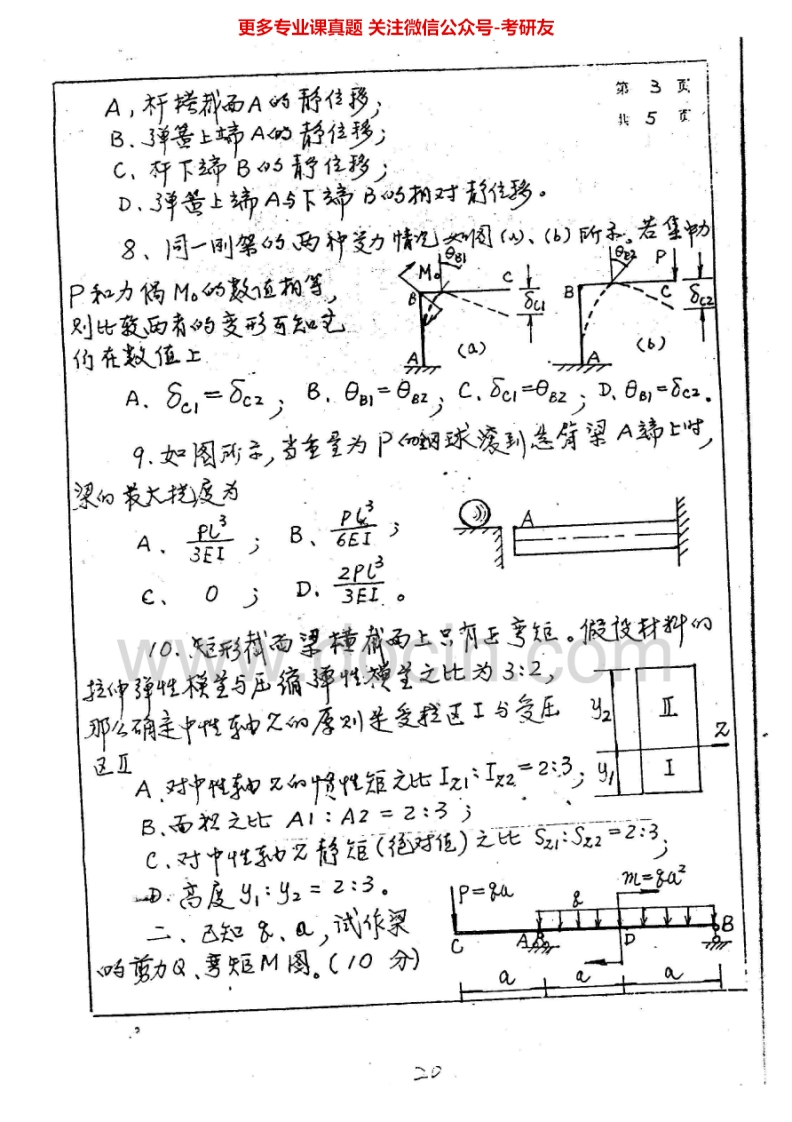 更多专业课真题 关注微信公众号-考研友
第 3 页
共 5 页
A、杆 截面A的静位移;
B、弹簧上端A的静位移;
C、杆下端B的静位移;
D、弹簧上端A与下端B的相对静位移。
8、同一刚架的两种受力情况如图(a)、(b)所示。若集中力
P和力偶M₀的数值相等,
则比较两者的变形可知它
们在数值上
M₀ θB1 B C δC1 A (a)
θB2 P B C δC2 A (b)
A、δC1=δC2; B、θB1=θB2; C、δC1=θB2; D、θB1=δC2。
9.如图所示,当重量为P的钢球滚到悬臂梁A端上时,
梁的最大挠度为
A、PL³/3EI; B、PL³/6EI;
C、0; D、2PL³/3EI。
A
10、矩形截面梁横截面上只有正弯矩。假设材料的
拉伸弹性模量与压缩弹性模量之比为3:2,
那么确定中性轴Z的原则是受拉区I与受压
区II
y₂ II Z
y₁ I
A、对中性轴Z的惯性矩之比Iz1:Iz2=2:3;
B、面积之比 A1:A2=2:3;
C、对中性轴Z静矩(绝对值)之比 Sz1:Sz2=2:3;
D、高度y₁:y₂=2:3。
二、已知q、a,试作梁
的剪力Q、弯矩M图。(10分)
P=qa q m=qa²
C A D B
a a a
20
www.docin.com